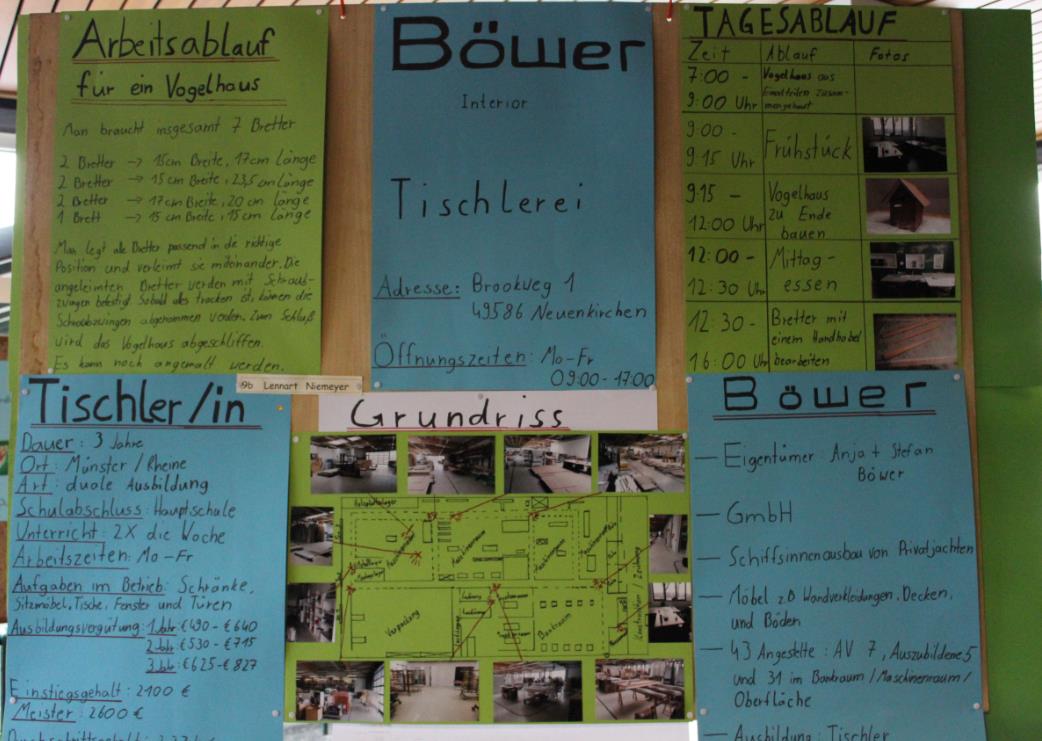 Arbeitsablauf
für ein Vogelhaus
Man braucht insgesamt 7 Bretter
2 Bretter → 15cm Breite, 17cm länge
2 Bretter → 15 cm Breite, 23,5 cm Länge
2 Bretter → 17cm Breite, 20 cm länge
1 Brett → 15 cm Breite, 15 cm länge
Man legt alle Bretter passend in die richtige
Position und verleimt sie miteinander. Die
angeleimten Bretter werden mit Schraub-
zwingen befestigt. Sobald alles trocken ist, können die
Schraubzwingen abgenommen werden. Zum Schluß
wird das Vogelhaus abgeschliffen.
Es kann noch angemalt werden.
Böwer
Interior
Tischlerei
Adresse: Brookweg 1
49586 Neuenkirchen
Öffnungszeiten: Mo-Fr
09:00-17:00
TAGESABLAUF
Zeit Ablauf Fotos
7:00 - Vogelhaus aus
9:00 Uhr Einzelteilen zusam-
mengebaut
9:00 -
9:15 Uhr Frühstück
9:15 - Vogelhaus
zu Ende
12:00 Uhr bauen
12:00 - Mittag-
12:30 Uhr essen
12:30- Bretter mit
einem Handhobel
16:00 Uhr bearbeiten
9b Lennart Niemeyer
Tischler/in
Dauer: 3 Jahre
Ort: Münster / Rheine
Art: duale Ausbildung
Schulabschluss: Hauptschule
Unterricht: 2X die Woche
Arbeitszeiten: Mo-Fr
Aufgaben im Betrieb: Schränke,
Sitzmöbel, Tische, Fenster und Türen
Ausbildungsvergütung: 1 Jahr: €490 - €640
2 Jahr: €530 - €715
3 Jahr: €625 - €827
Einstiegsgehalt: 2100 €
Meister: 2600 €
Grundriss
Verpackung
Bankraum
Böwer
— Eigentümer: Anja + Stefan
Böwer
— GmbH
— Schiffsinnenausbau von Privatjachten
— Möbel z.B Wandverkleidungen, Decken,
und Böden
— 43 Angestellte: AV 7, Auszubildene 5
und 31 im Bankraum / Maschinenraum /
Oberfläche
— Ausbildung: Tischler